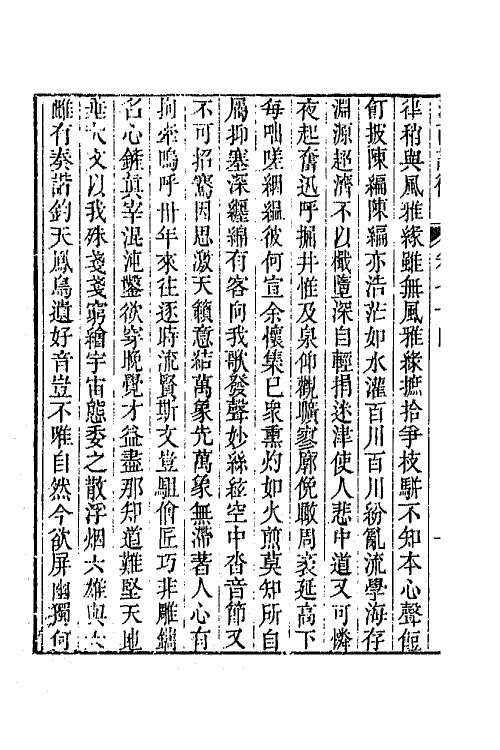 卷七十四
律稍與風雅緣雖無風雅緣摭拾爭枝駢不知本心聲侸
飣披陳編陳編亦浩茫如水灌百川百川紛亂流學海存
淵源超濟不以檝墮深自輕捐迷津使人悲中道又可憐
夜起奮迅呼掘井惟及泉仰觀曠寥廓俛瞰周袤延高下
每咄嗟絪縕彼何宣余懷集巳衆熏灼如火煎莫知所自
屬抑塞深纏綿有客向我歌發聲妙絲絃空中沓音節又
不可招騫因思激天籟意結萬象先萬象無滯著人心有
拘牽嗚呼卅年來往逐時流賢斯文豈駔儈匠巧非雕鐫
名心錐眞宰混沌鑿欲穿晚覺才益盡那知道難堅天地
大文以我殊戔戔窮繪宇宙態委之散浮烟大雄與
雖有奏諧鈞天鳳鳥遺好音豈不唯自然今欲屏幽獨何